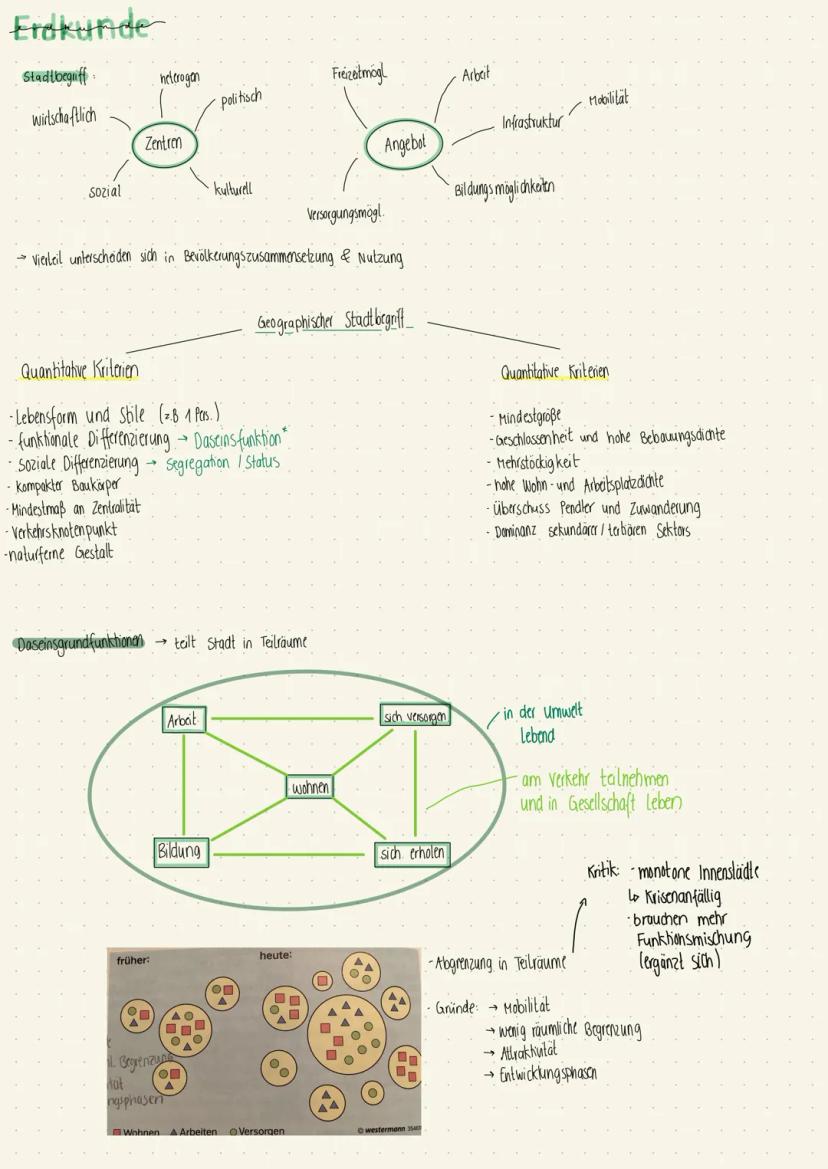 Erdkunde
Stadtbegriff:
heterogen
politisch
wirtschaftlich
Zentren
sozial
kulturell
Freizeitmögl.
Arbeit
Mobilität
Infrastruktur
Angebot
Bildungsmöglichkeiten
Versorgungsmögl.
→ Vierteil unterscheiden sich in Bevölkerungszusammensetzung & Nutzung
Geographischer Stadtbegriff
Quantitative Kriterien
- Lebensform und Stile (z.B 1 Pers.)
- funktionale Differenzierung → Daseinsfunktion*
- soziale Differenzierung → Segregation / Status
- kompakter Baukörper
- Mindestmaß an Zentralität
- Verkehrsknotenpunkt
- naturferne Gestalt
Quantitative Kriterien
- Mindestgröße
- Geschlossenheit und hohe Bebauungsdichte
- Mehrstöckigkeit
- hohe Wohn- und Arbeitsplatzdichte
- Überschuss Pendler und Zuwanderung
- Dominanz sekundärer / tertiären Sektors
Daseinsgrundfunktionen → teilt Stadt in Teilräume
Arbeit
sich versorgen
wohnen
Bildung
sich erholen
in der Umwelt
Lebend
am Verkehr teilnehmen
und in Gesellschaft Leben
Kritik: - monotone Innenstädte
↳ Krisenanfällig
- brauchen mehr
Funktionsmischung
(ergänzt sich)
- Abgrenzung in Teilräume
- Gründe: → Mobilität
→ wenig räumliche Begrenzung
→ Attraktivität
→ Entwicklungsphasen
früher:
heute:
l. Begrenzung
tät
ngsphasen
Wohnen Arbeiten Versorgen
© westermann